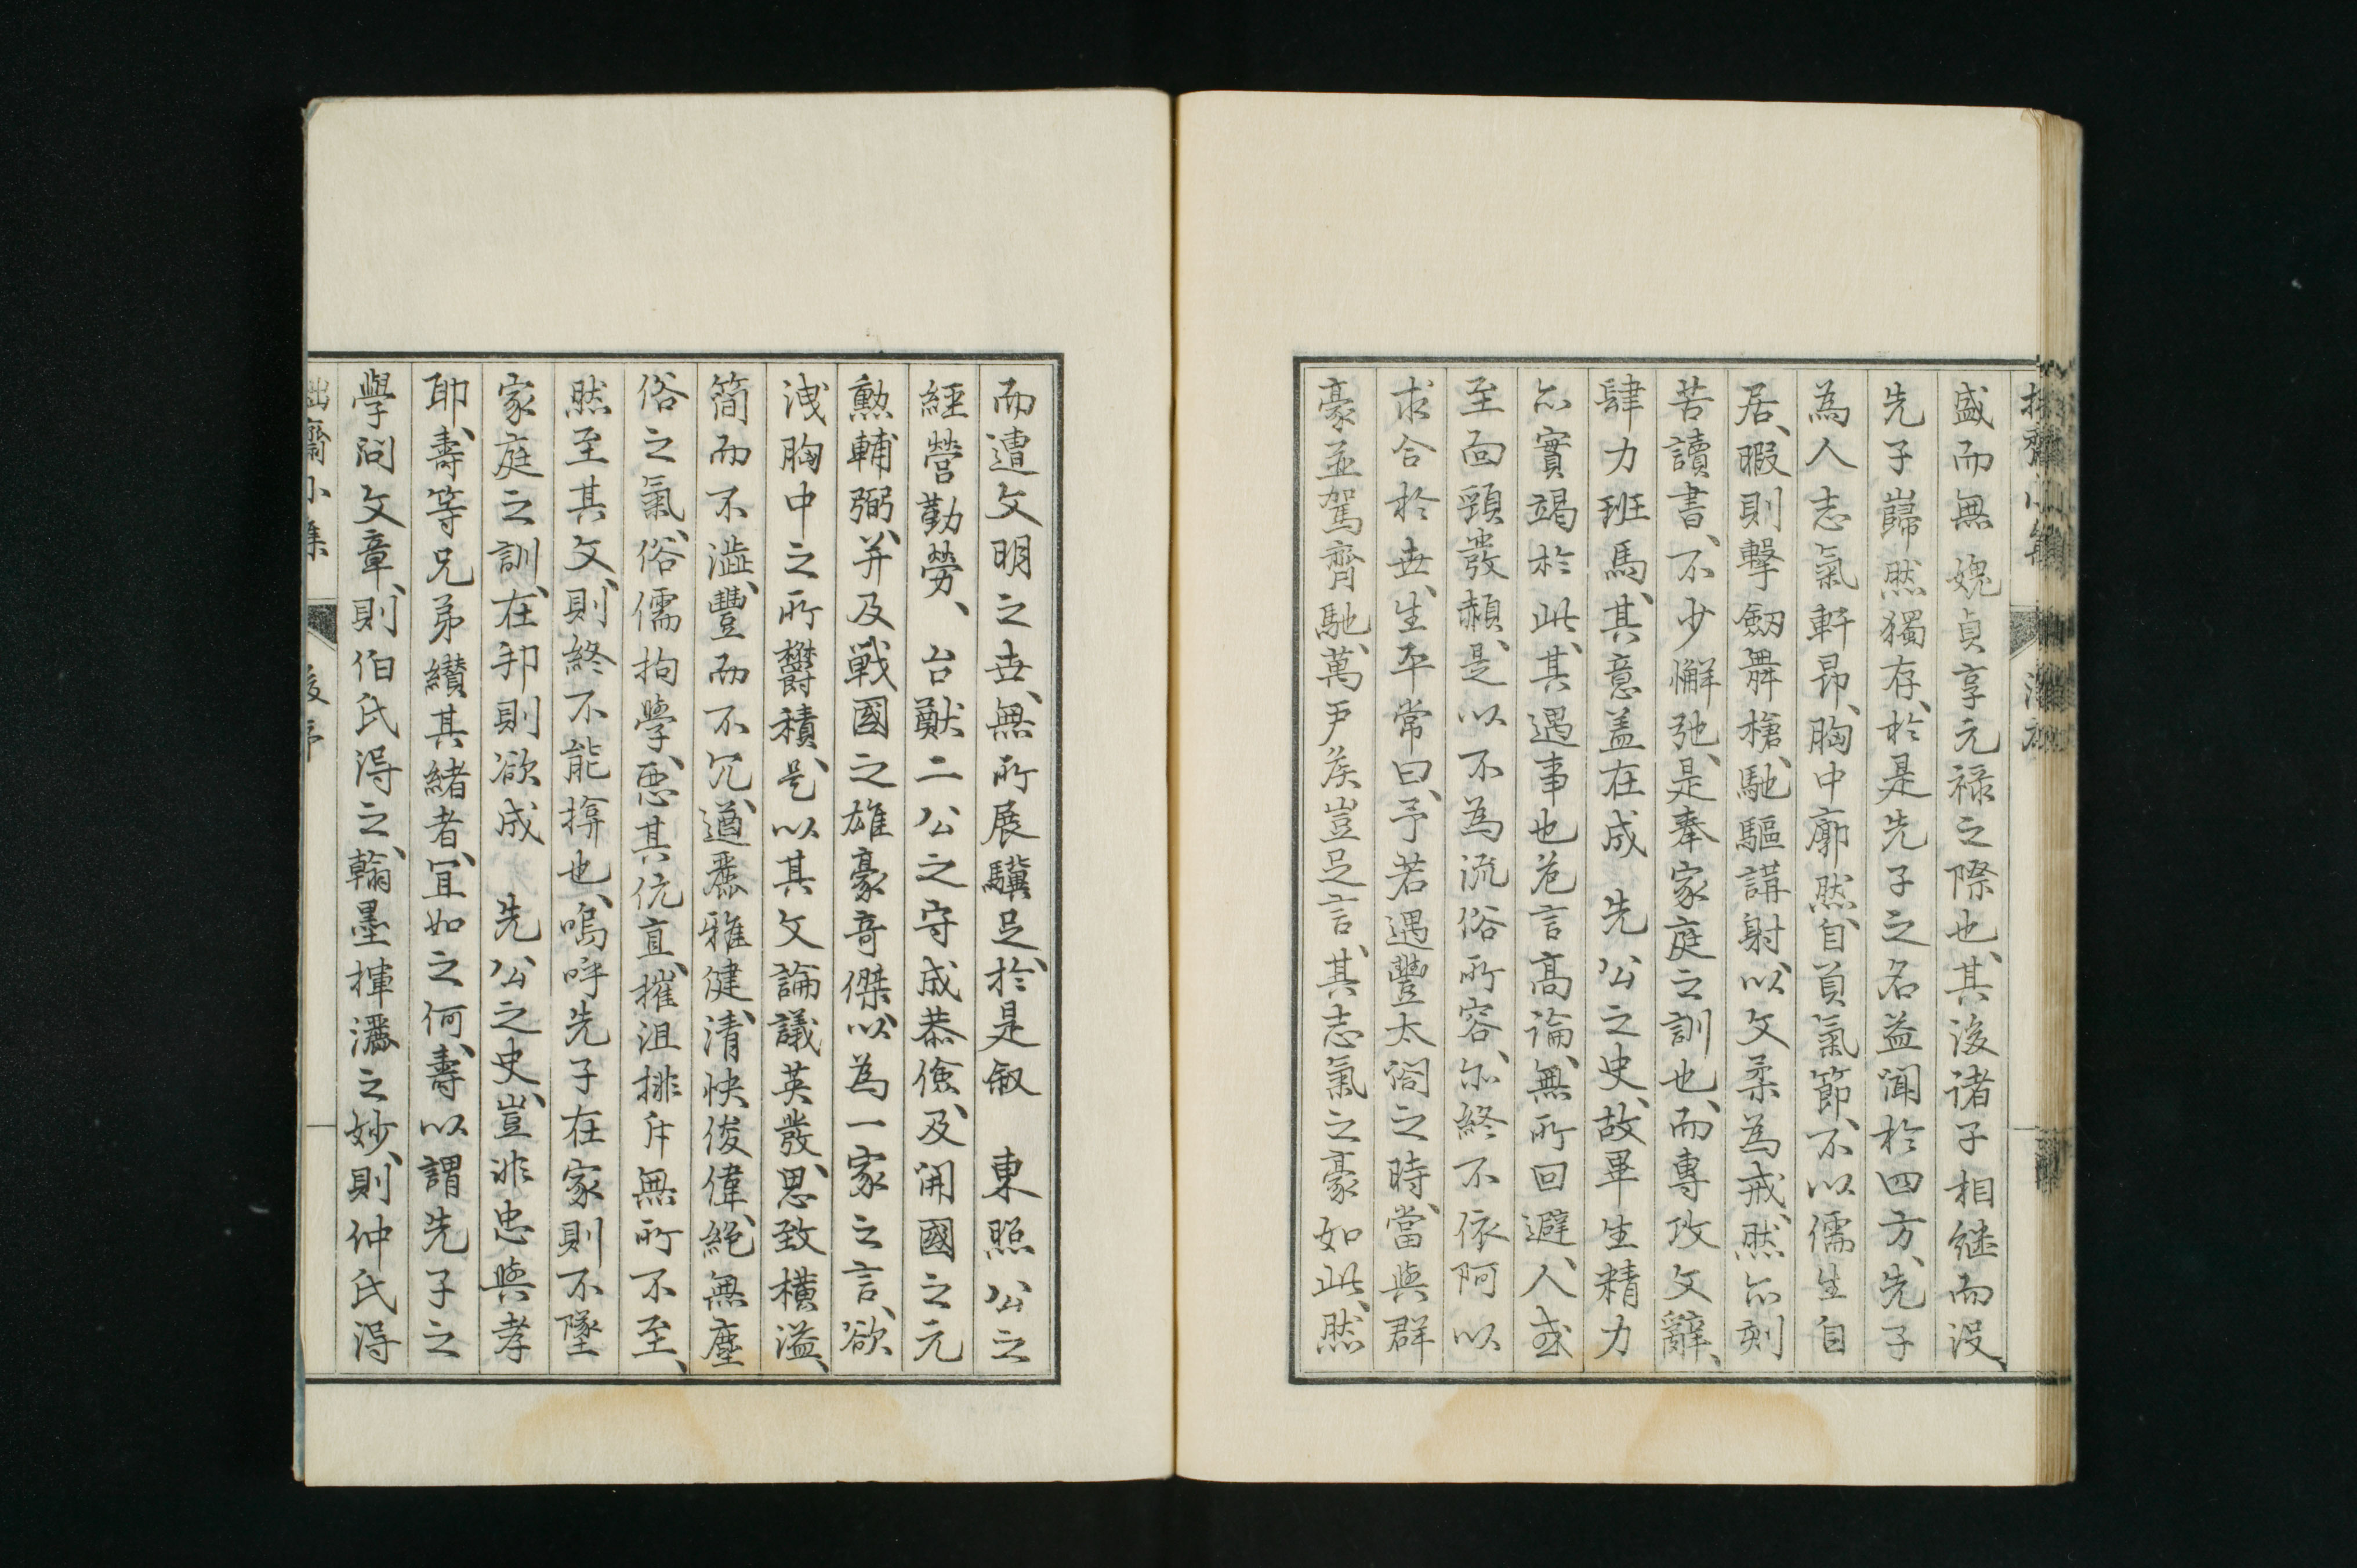 盛而無媿貞享元禄之際也、其後諸子相継而没、
先子巋然獨存、於是先子之名益聞於四方、先子
為人志氣軒昂、胸中廓然、自負氣節、不以儒生自
居、暇則擊劔舞槍、馳驅講射、以文柔為戒、然亦刻
苦讀書、不少懈弛、是奉家庭之訓也、而專攻文辭、
肆力班馬、其意盖在成　先公之史、故畢生精力
亦實竭於此、其遇事也危言高論、無所回避、人或
至面頸發赬、是以不為流俗所容、亦終不依阿以
求合於世、生平常曰、予若遇豐太閤之時、當與群
豪並駕齊馳、萬戶矦豈足言、其志氣之豪如此、然
而遭文明之世、無所展驥足、於是叙　東照公之
經營勤勞、　台猷二公之守成恭儉、及開國之元
勲輔弼、并及戦國之雄豪奇傑、以為一家之言、欲
洩胸中之所欝積、是以其文論議英發、思致橫溢、
簡而不澁、豐而不冗、遒麗雅健、清快俊偉、絶無塵
俗之氣、俗儒拘學、惡其伉直、摧沮排斥無所不至、
然至其文、則終不能揜也、嗚呼先子在家則不墜
家庭之訓、在邦則欲成　先公之史、豈非忠與孝
耶、壽等兄弟纉其緒者、宜如之何、壽以謂先子之
學問文章、則伯氏得之、翰墨揮灑之妙、則仲氏得
拙齋小集　後序　一